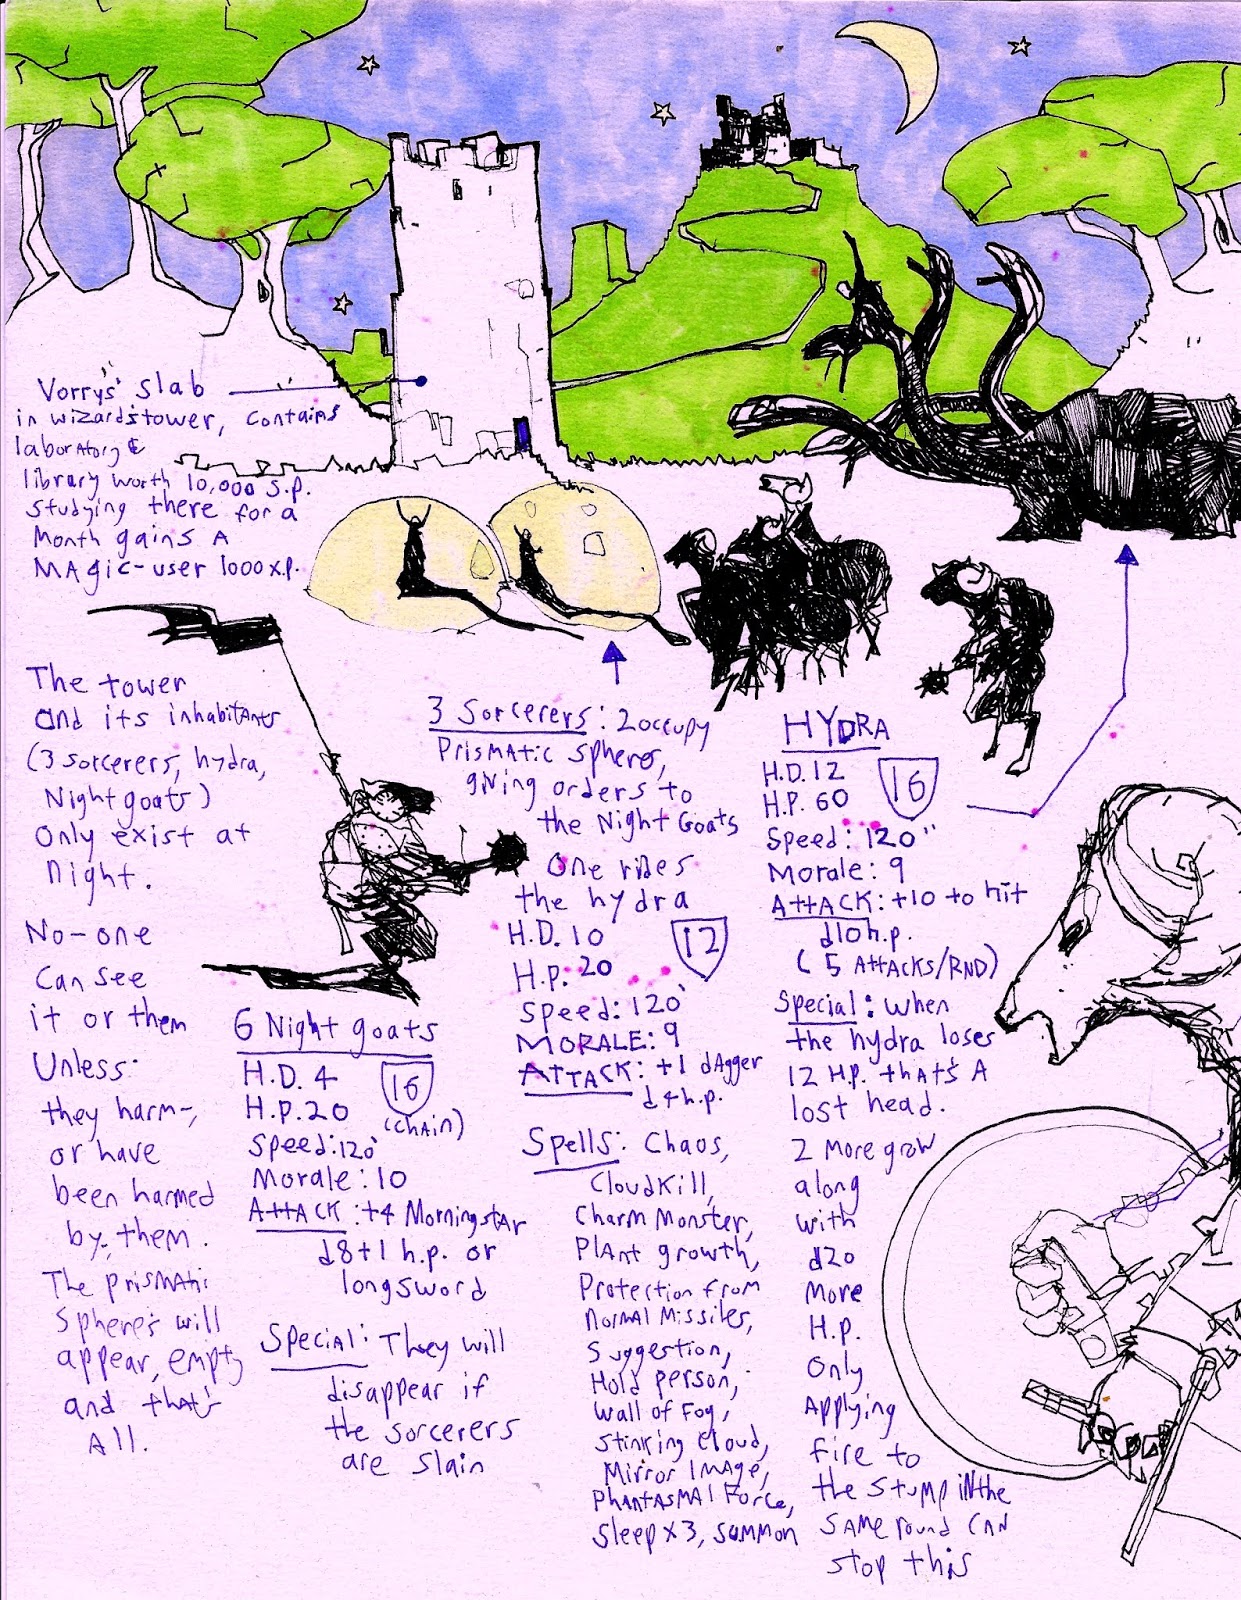 Vorrys' slab
in wizard's tower, contains
laboratory &
library worth 10,000 s.p.
studying there for a
month gains a
MAgic-user 1000 x.p.
The tower
and its inhabitants
(3 sorcerers, hydra,
Night goats)
only exist at
night.
No-one
can see
it or them
Unless:
they harm-,
or have
been harmed
by, them.
The prismatic
spheres will
appear, empty
and that's
All.
6 Night goats
H.D. 4
H.P. 20
16
(chain)
Speed: 120'
Morale: 10
ATTACK: +4 Morningstar
d8+1 h.p. or
longsword
Special: They will
disappear if
the sorcerers
are slain
3 Sorcerers: 2 occupy
Prismatic spheres,
giving orders to
the Night Goats
One rides
the hydra
H.D. 10
H.P. 20
12
Speed: 120'
MORALE: 9
ATTACK: +1 dagger
d4 h.p.
Spells: Chaos,
Cloudkill,
Charm Monster,
Plant growth,
Protection from
Normal Missiles,
Suggestion,
Hold person,
Wall of Fog,
Stinking cloud,
Mirror Image,
Phantasmal Force,
Sleep x 3, summon
HYDRA
H.D. 12
H.P. 60
16
Speed: 120"
Morale: 9
ATTACK: +10 to hit
d10 h.p.
(5 ATTACKS/RND)
Special: when
the hydra loses
12 H.P. that's A
lost head.
2 more grow
along
with
d20
More
H.P.
Only
Applying
fire to
the stump in the
same round can
stop this